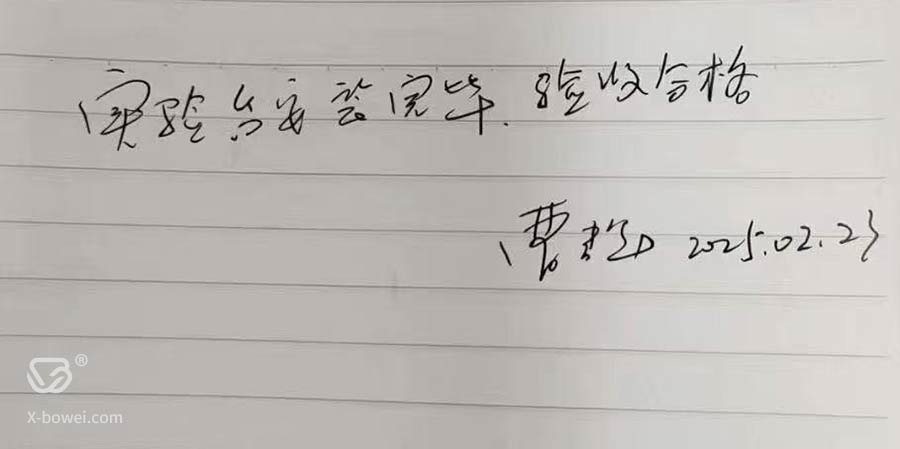 实验台安装完毕.验收合格
曹 2025.02.23
®
X-bowei.com